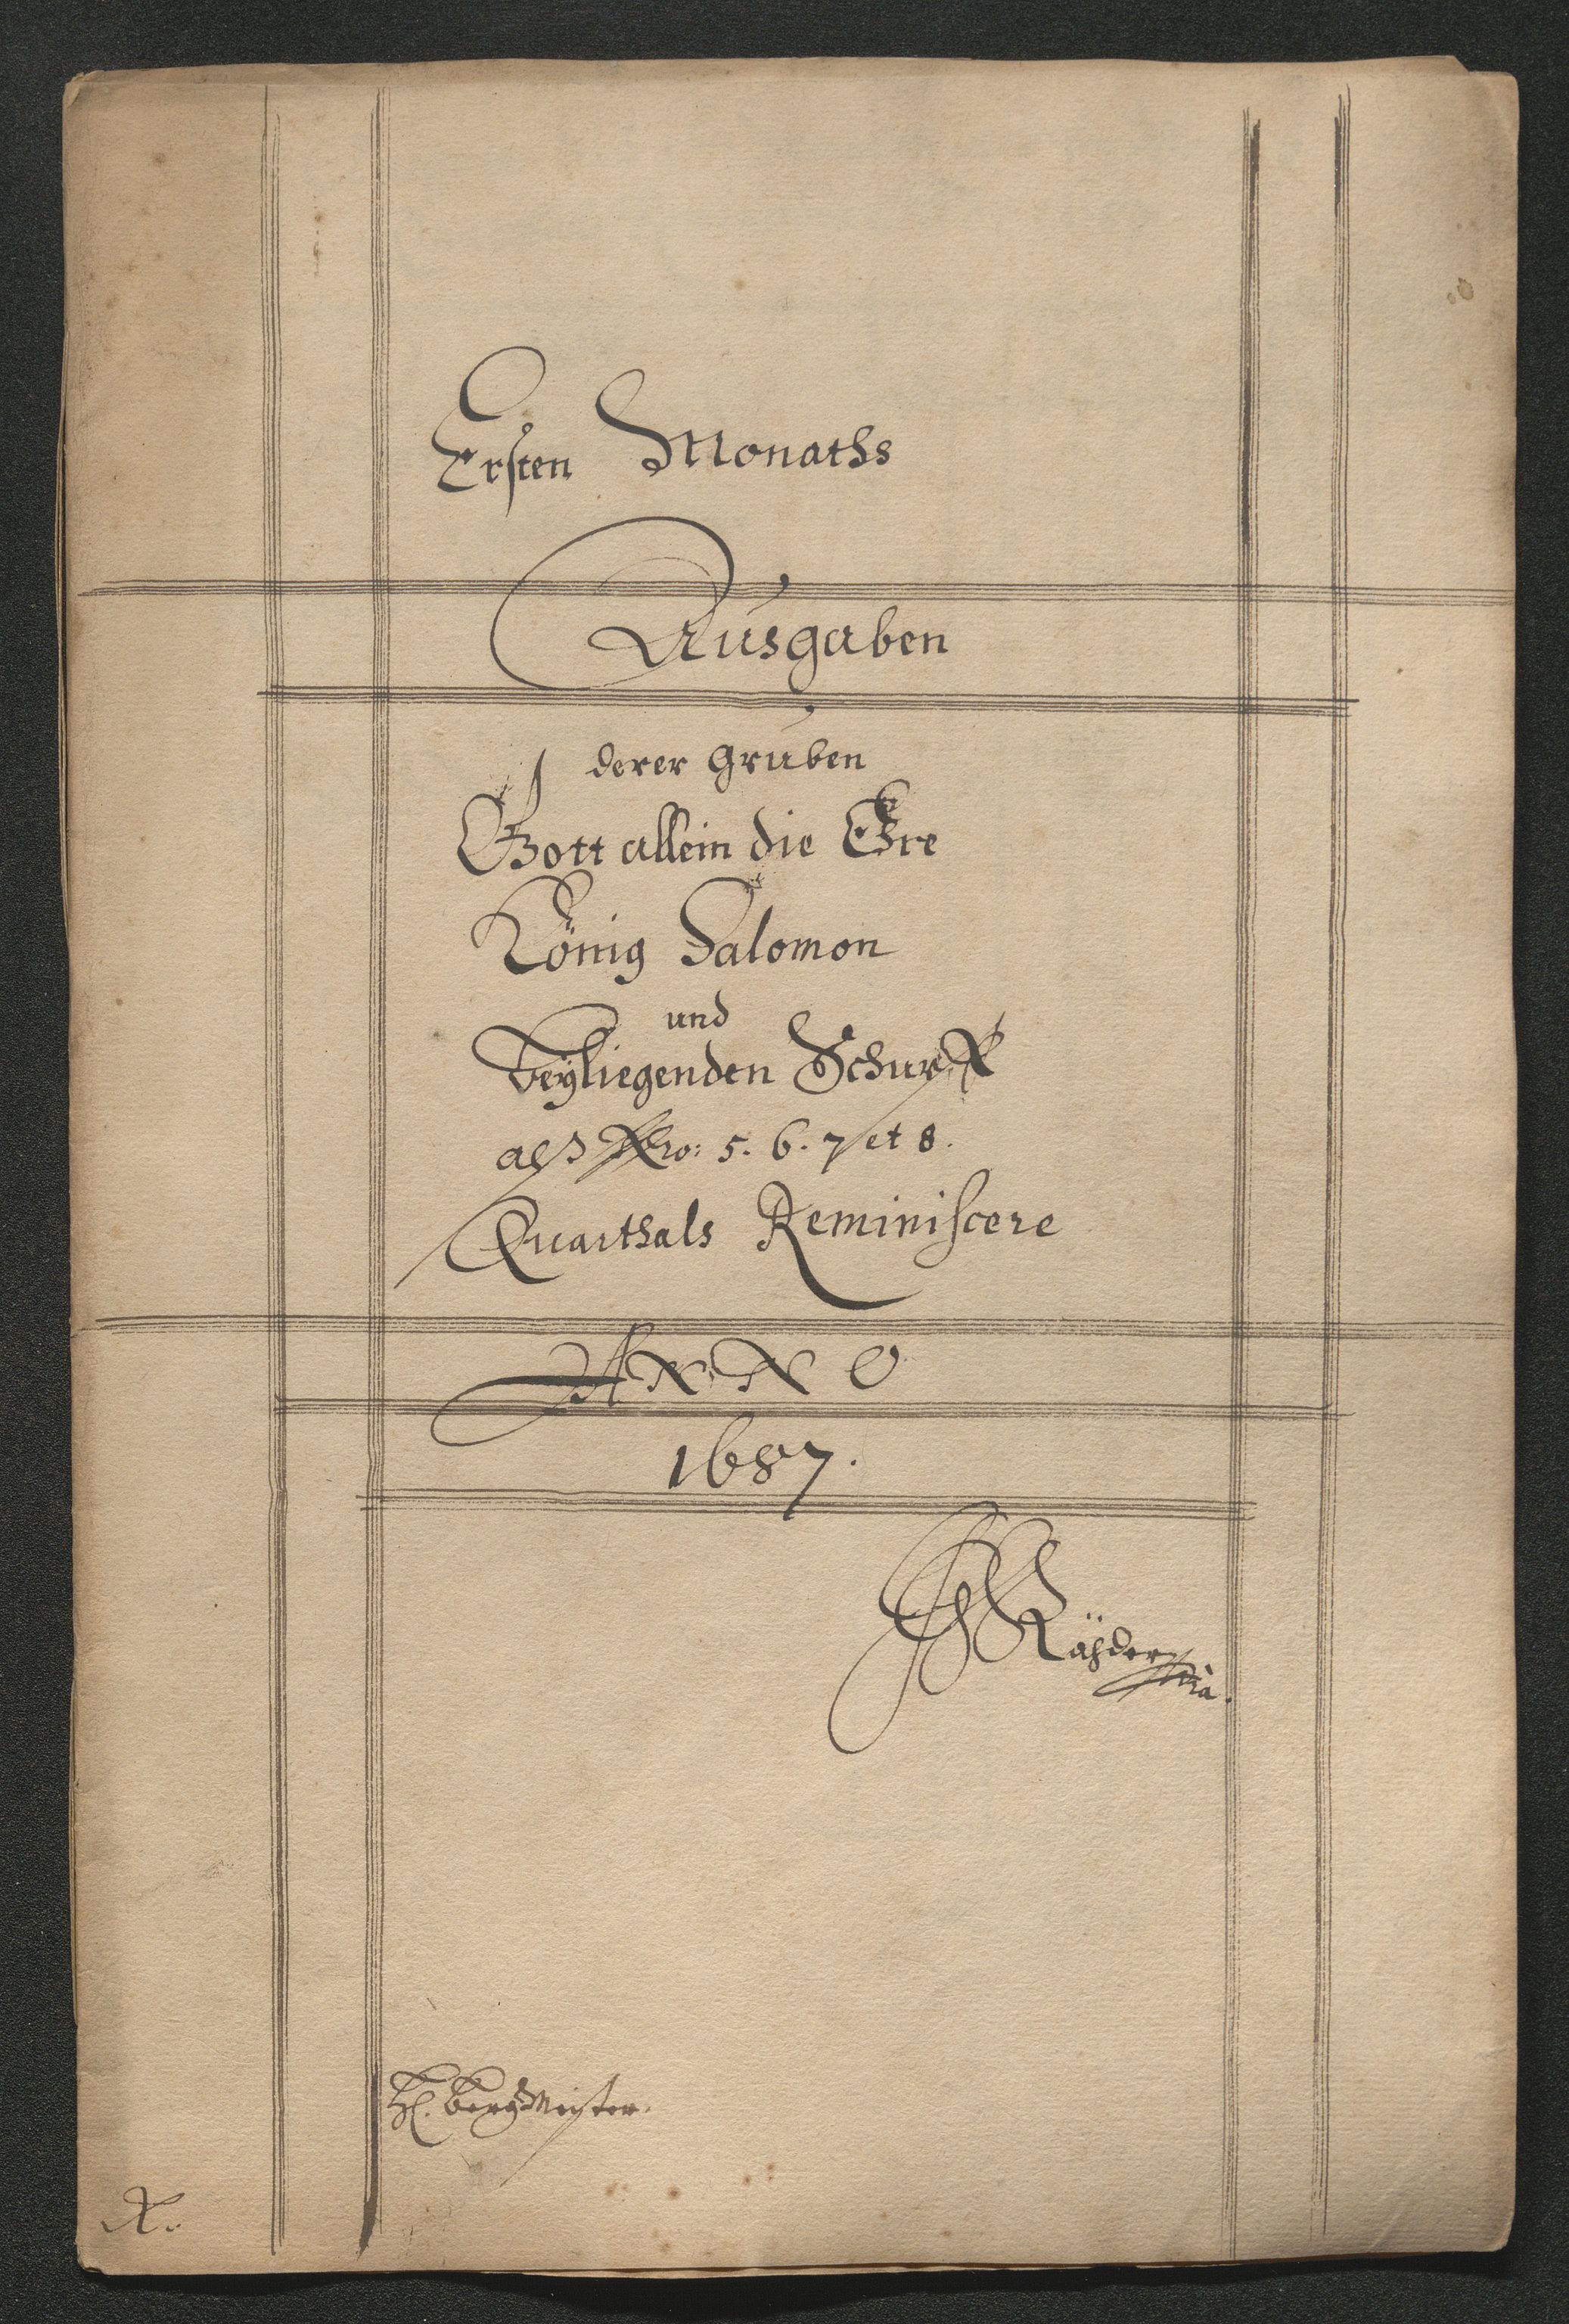 Ersten Monaths
Ausgaben
derer gruben
Gott allein die Ehre
König Salomon
und
beÿliegenden Schurff
alß Nro: 5. 6. 7 et 8.
Quarthals Reminiscere
ANNO
1687.
H. bergMeister.